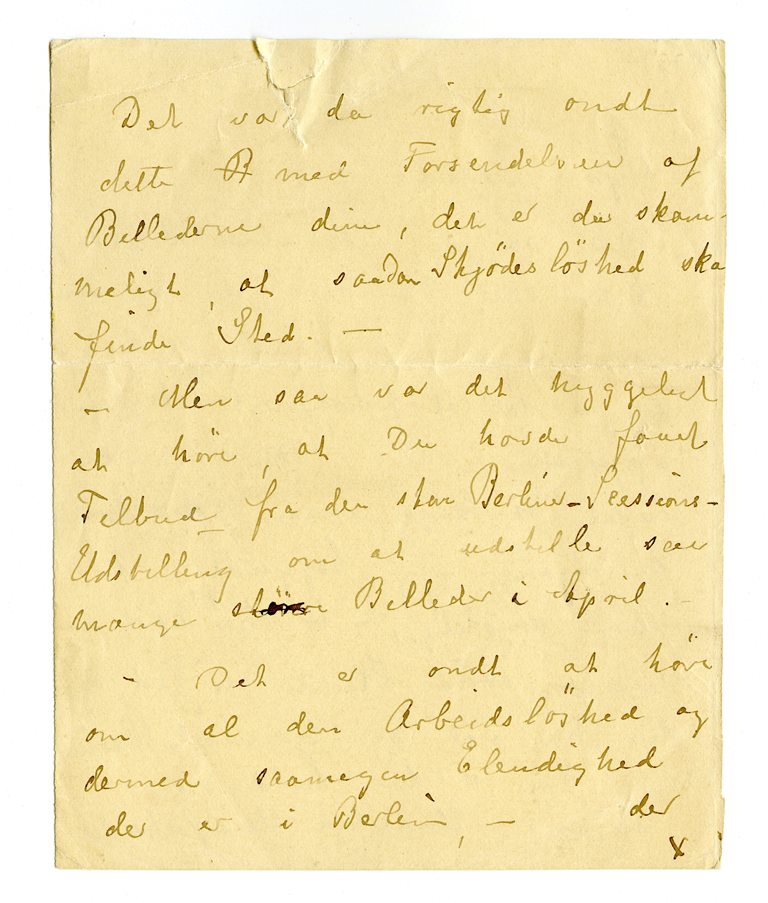 Det var da rigtig ondt
dette B med Forsendelsen af
Billederne dine, det er da skam-
meligt, at saadan Skjødesløshed ska
finde Sted. —
— Men saa var det hyggeligt
at höre, at Du havde faaet
Tilbud fra den store Berliner-Scessions-
Udstilling om at udstille saa
mange större Billeder i April. —
– Det er ondt at höre
om al den Arbeidslöshed og
dermed saamegen Elendighed
der er i Berlin, — der
x